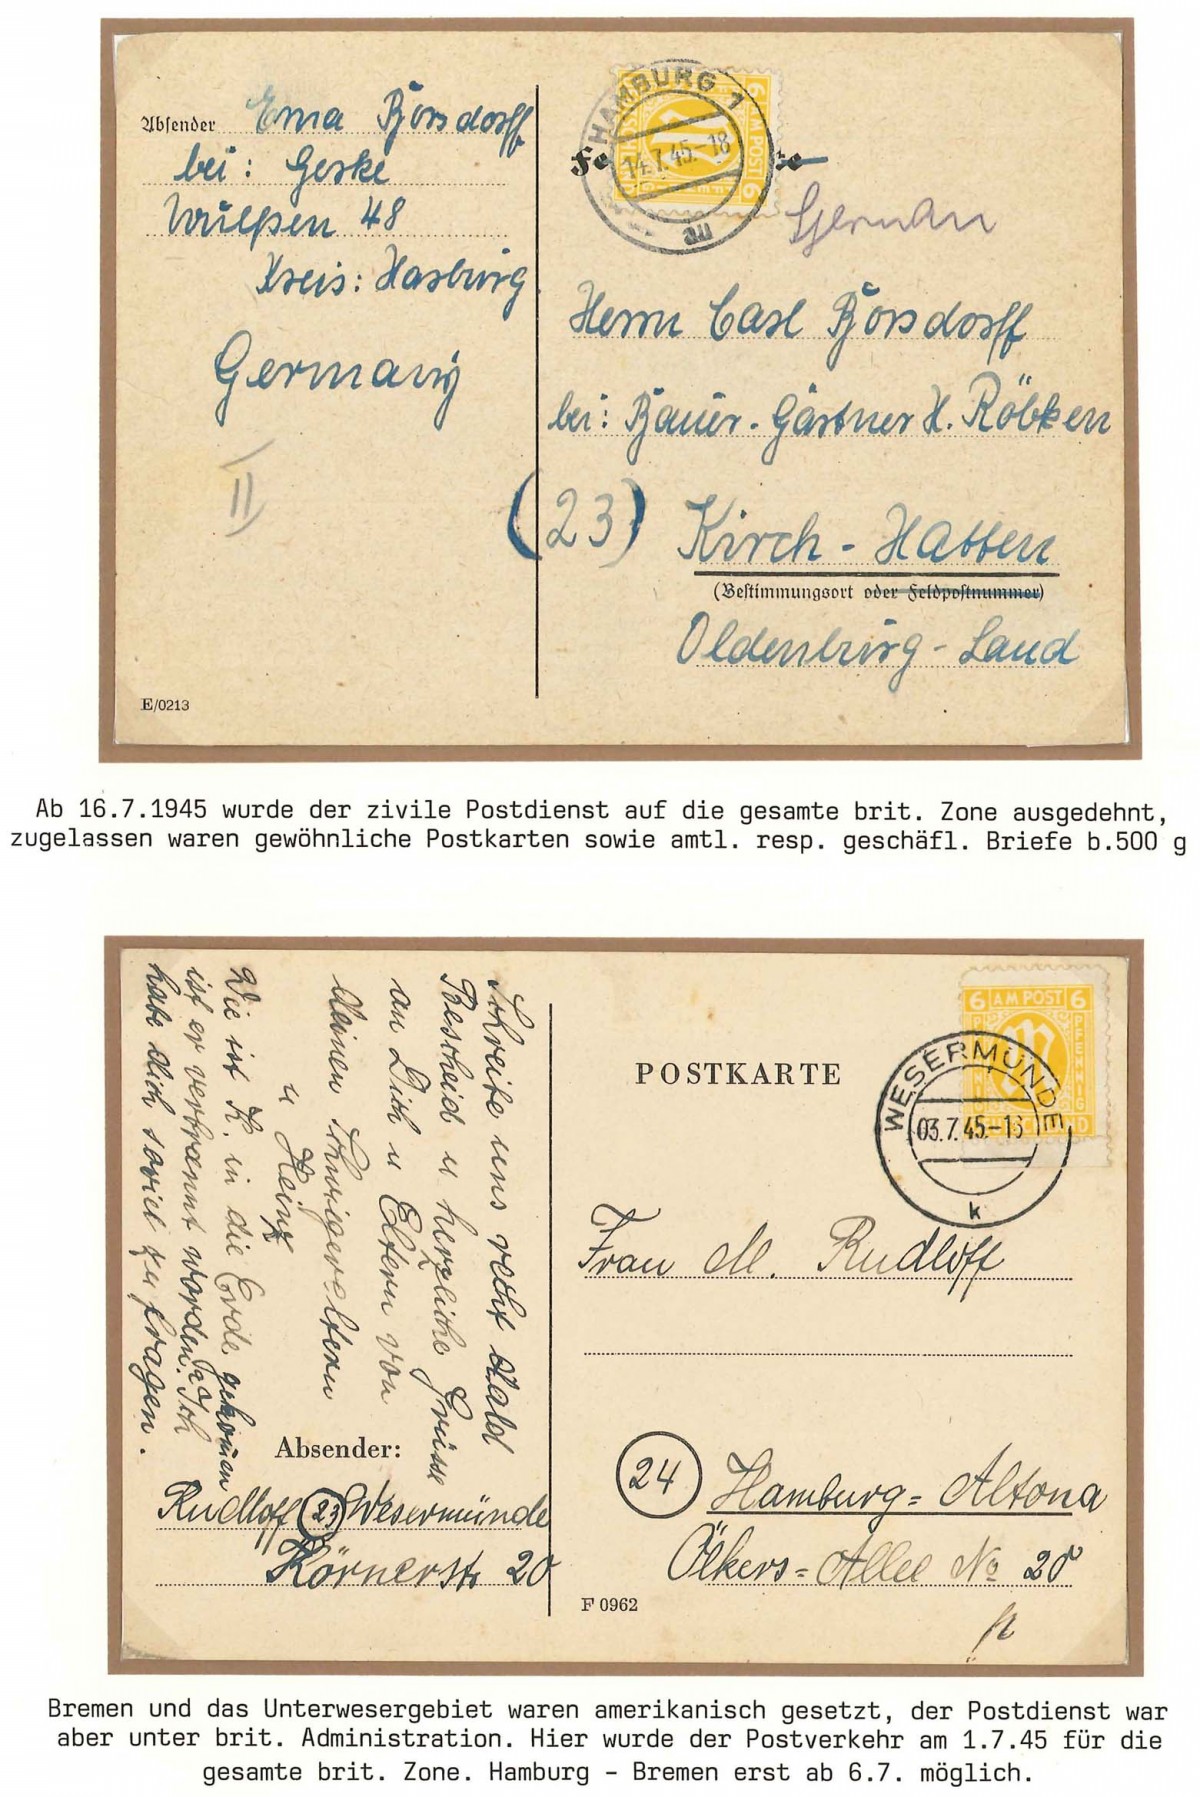 Absender Erna Borsdorff
bei: Geske
Wulfsen 48
Kreis: Harburg
Germany
II
6 AM POST 6
HAMBURG 1
14.7.45.-18
au
Fe
te
German
Herrn Carl Borsdorff
bei: Bauer-Gärtner H. Röbken
(23) Kirch-Hatten
(Bestimmungsort oder Feldpostnummer)
Oldenburg-Land
E/0213
Ab 16.7.1945 wurde der zivile Postdienst auf die gesamte brit. Zone ausgedehnt,
zugelassen waren gewöhnliche Postkarten sowie amtl. resp. geschäfl. Briefe b.500 g
Schreibe uns recht bald
Bescheid u herzliche Grüsse
an Dich u Eltern von
deinen Schwiegereltern
u Heinz
Wie ist K. in die Erde gekommen
ist er verbrannt worden? Ich
habe dich soviel zu fragen.
Absender:
Rudloff (23) Wesermünde
Körnerstr 20
POSTKARTE
6 AM POST 6
PFENNIG
DEUTSCHLAND
WESERMÜNDE
03.7.45.-16
k
Frau M. Rudloff
24 Hamburg=Altona
Ölkers=Allee No 20
F 0962
Bremen und das Unterwesergebiet waren amerikanisch gesetzt, der Postdienst war
aber unter brit. Administration. Hier wurde der Postverkehr am 1.7.45 für die
gesamte brit. Zone. Hamburg – Bremen erst ab 6.7. möglich.